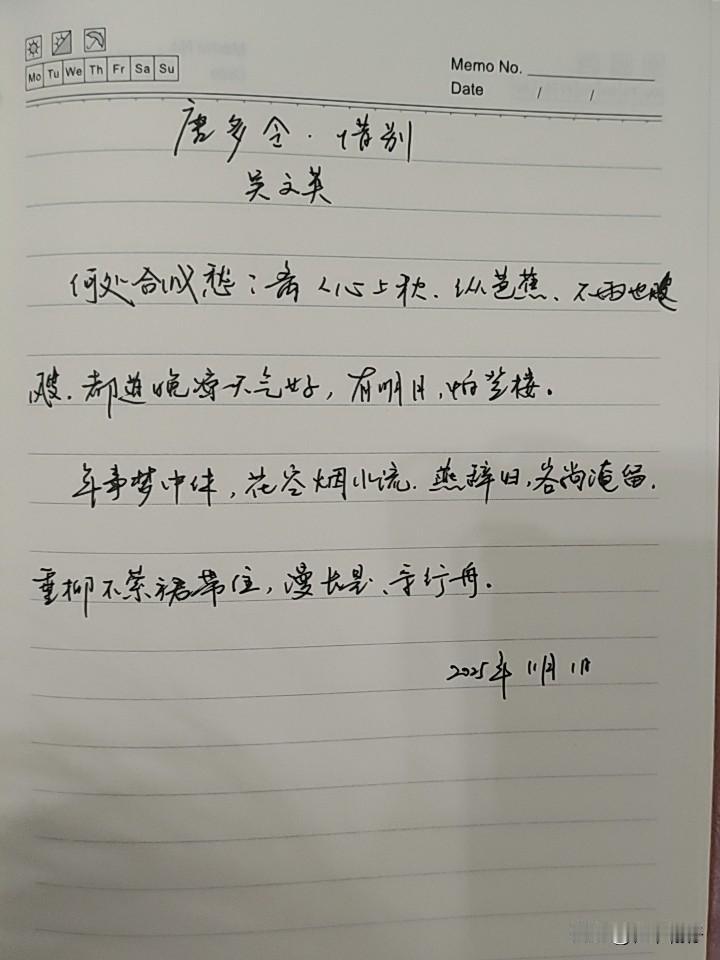 Mo Tu We Th Fr Sa Su
Memo No.
Date / /
唐多令·惜别
吴文英
何处合成愁;离人心上秋.纵芭蕉、不雨也飕
飕.都道晚凉天气好,有明月,怕登楼。
年事梦中休,花空烟水流.燕辞归,客尚淹留.
垂柳不萦裙带住,漫长是、系行舟.
2025年11月1日